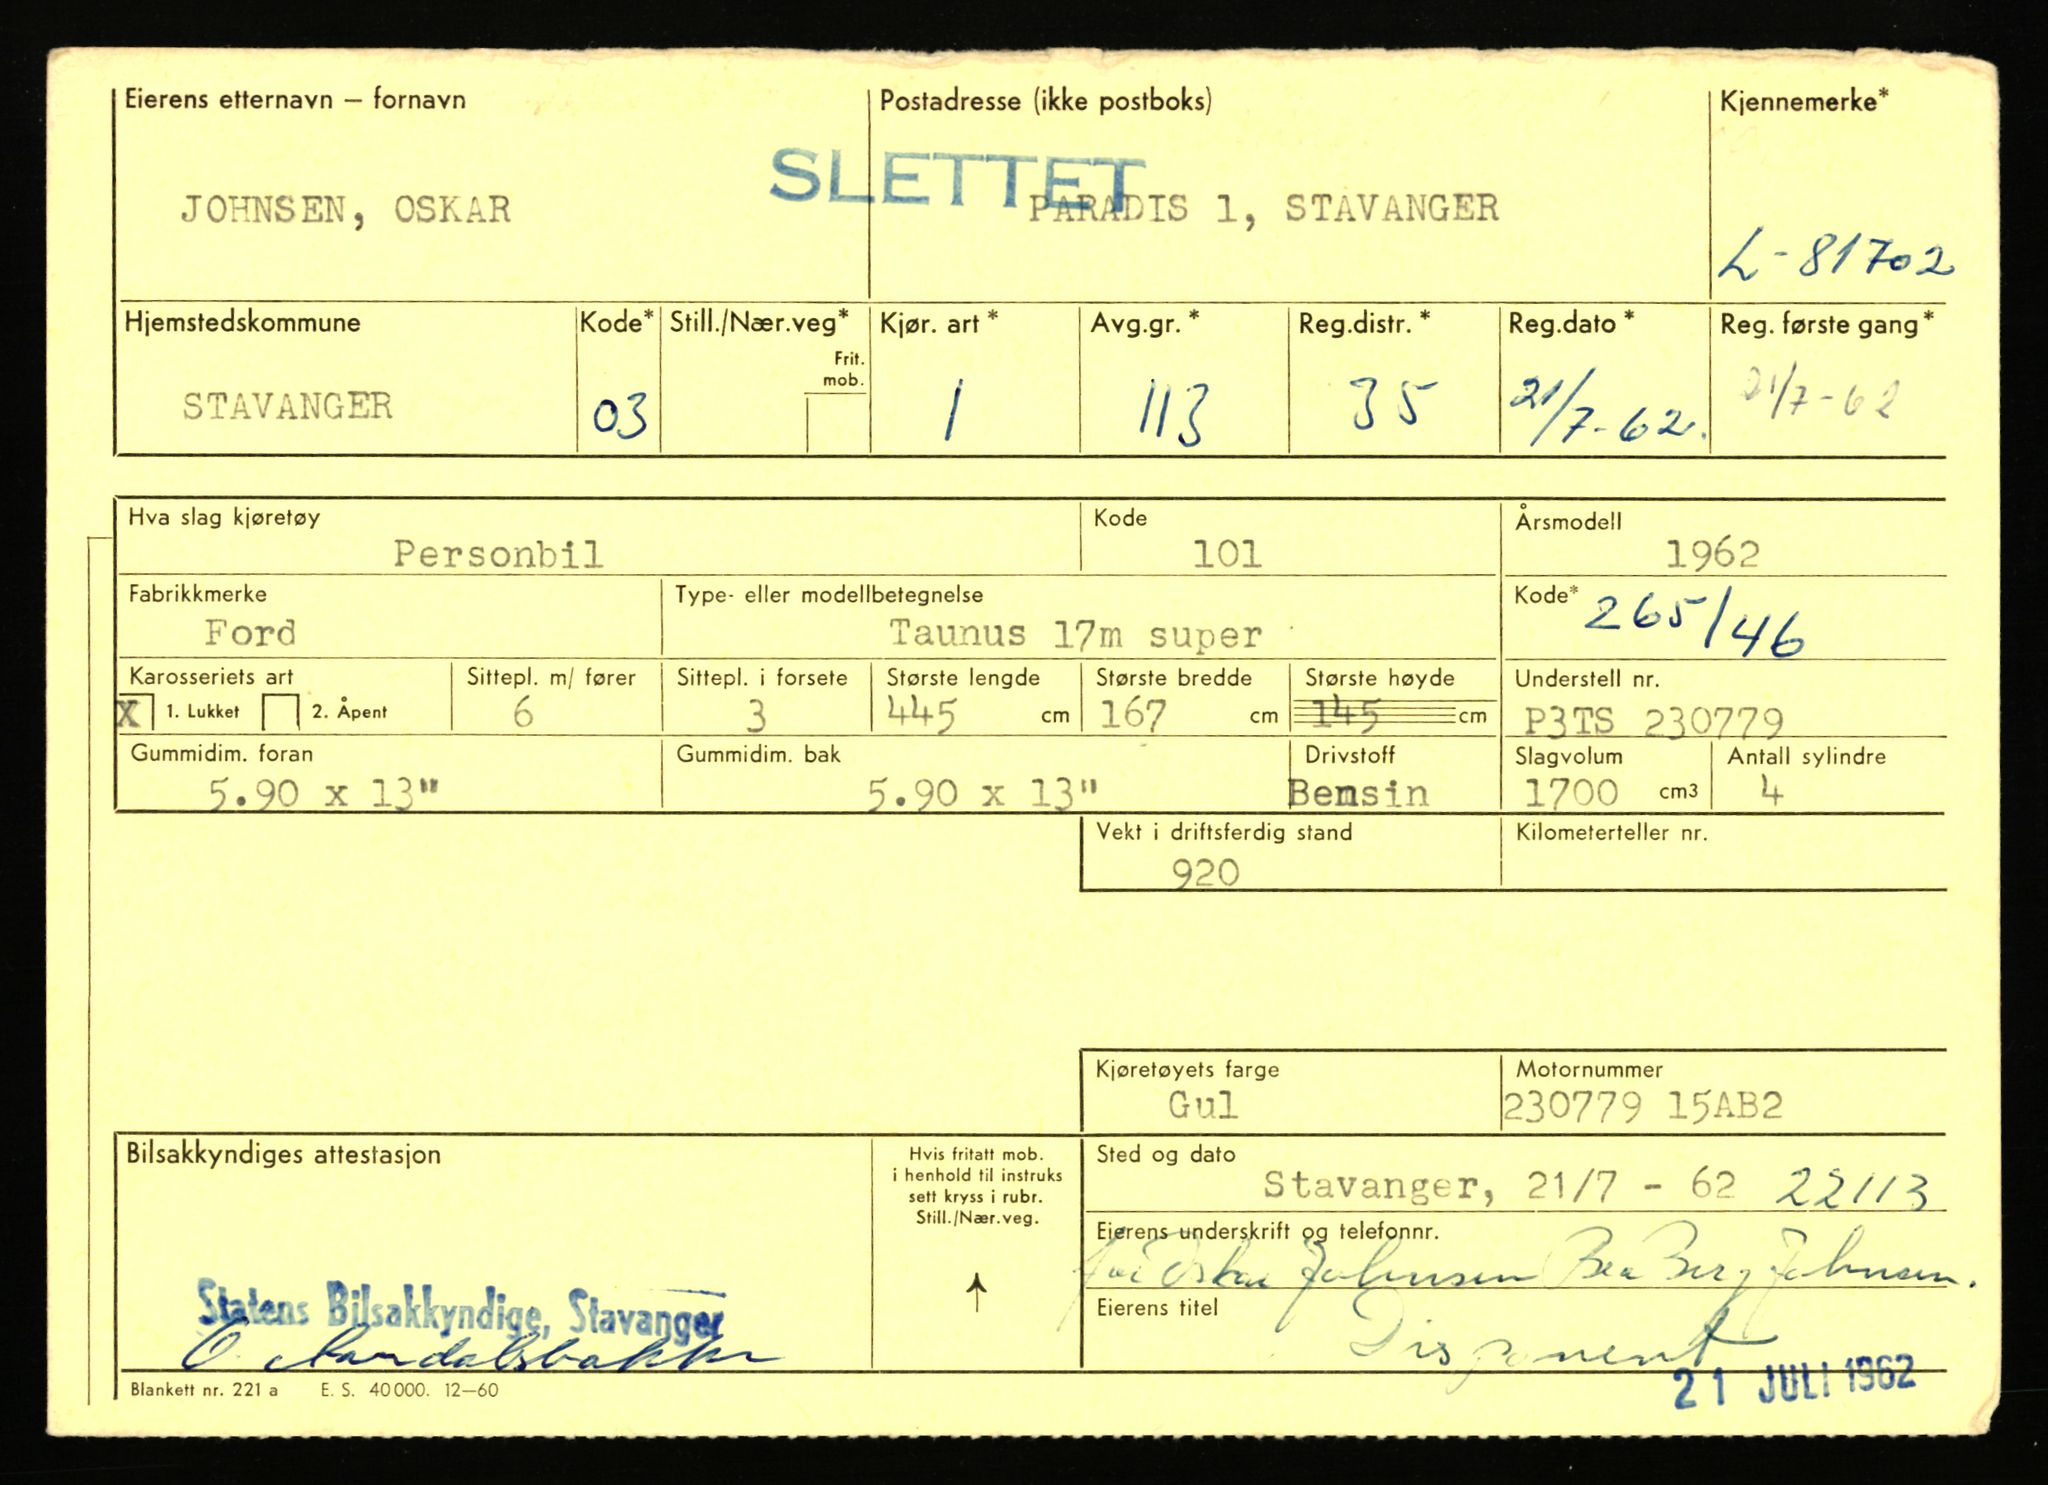 Eierens etternavn – fornavn Postadresse (ikke postboks) Kjennemerke*
SLETTET
JOHNSEN, OSKAR PARADIS 1, STAVANGER
L-81702
Hjemstedskommune Kode* Still./Nær.veg* Kjør. art* Avg.gr.* Reg.distr.* Reg.dato* Reg. første gang*
Frit. mob.
STAVANGER 03 1 113 35 21/7-62. 21/7-62
Hva slag kjøretøy Kode Årsmodell
Personbil 101 1962
Fabrikkmerke Type- eller modellbetegnelse Kode* 265/46
Ford Taunus 17m super
Karosseriets art Sittepl. m/ fører Sittepl. i forsete Største lengde Største bredde Største høyde Understell nr.
X 1. Lukket 2. Åpent 6 3 445 cm 167 cm 145 cm P3TS 230779
Gummidim. foran Gummidim. bak Drivstoff Slagvolum Antall sylindre
5.90 x 13" 5.90 x 13" Bensin 1700 cm3 4
Vekt i driftsferdig stand Kilometerteller nr.
920
Kjøretøyets farge Motornummer
Gul 230779 15AB2
Bilsakkyndiges attestasjon Hvis fritatt mob. Sted og dato
i henhold til instruks
sett kryss i rubr.
Still./Nær.veg.
Stavanger, 21/7 - 62 22113
Eierens underskrift og telefonnr.
Oskar Johnsen Berg Johnsen.
Statens Bilsakkyndige, Stavanger
Eierens titel
Disponent
21 JULI 1962
Blankett nr. 221 a E. S. 40 000. 12—60